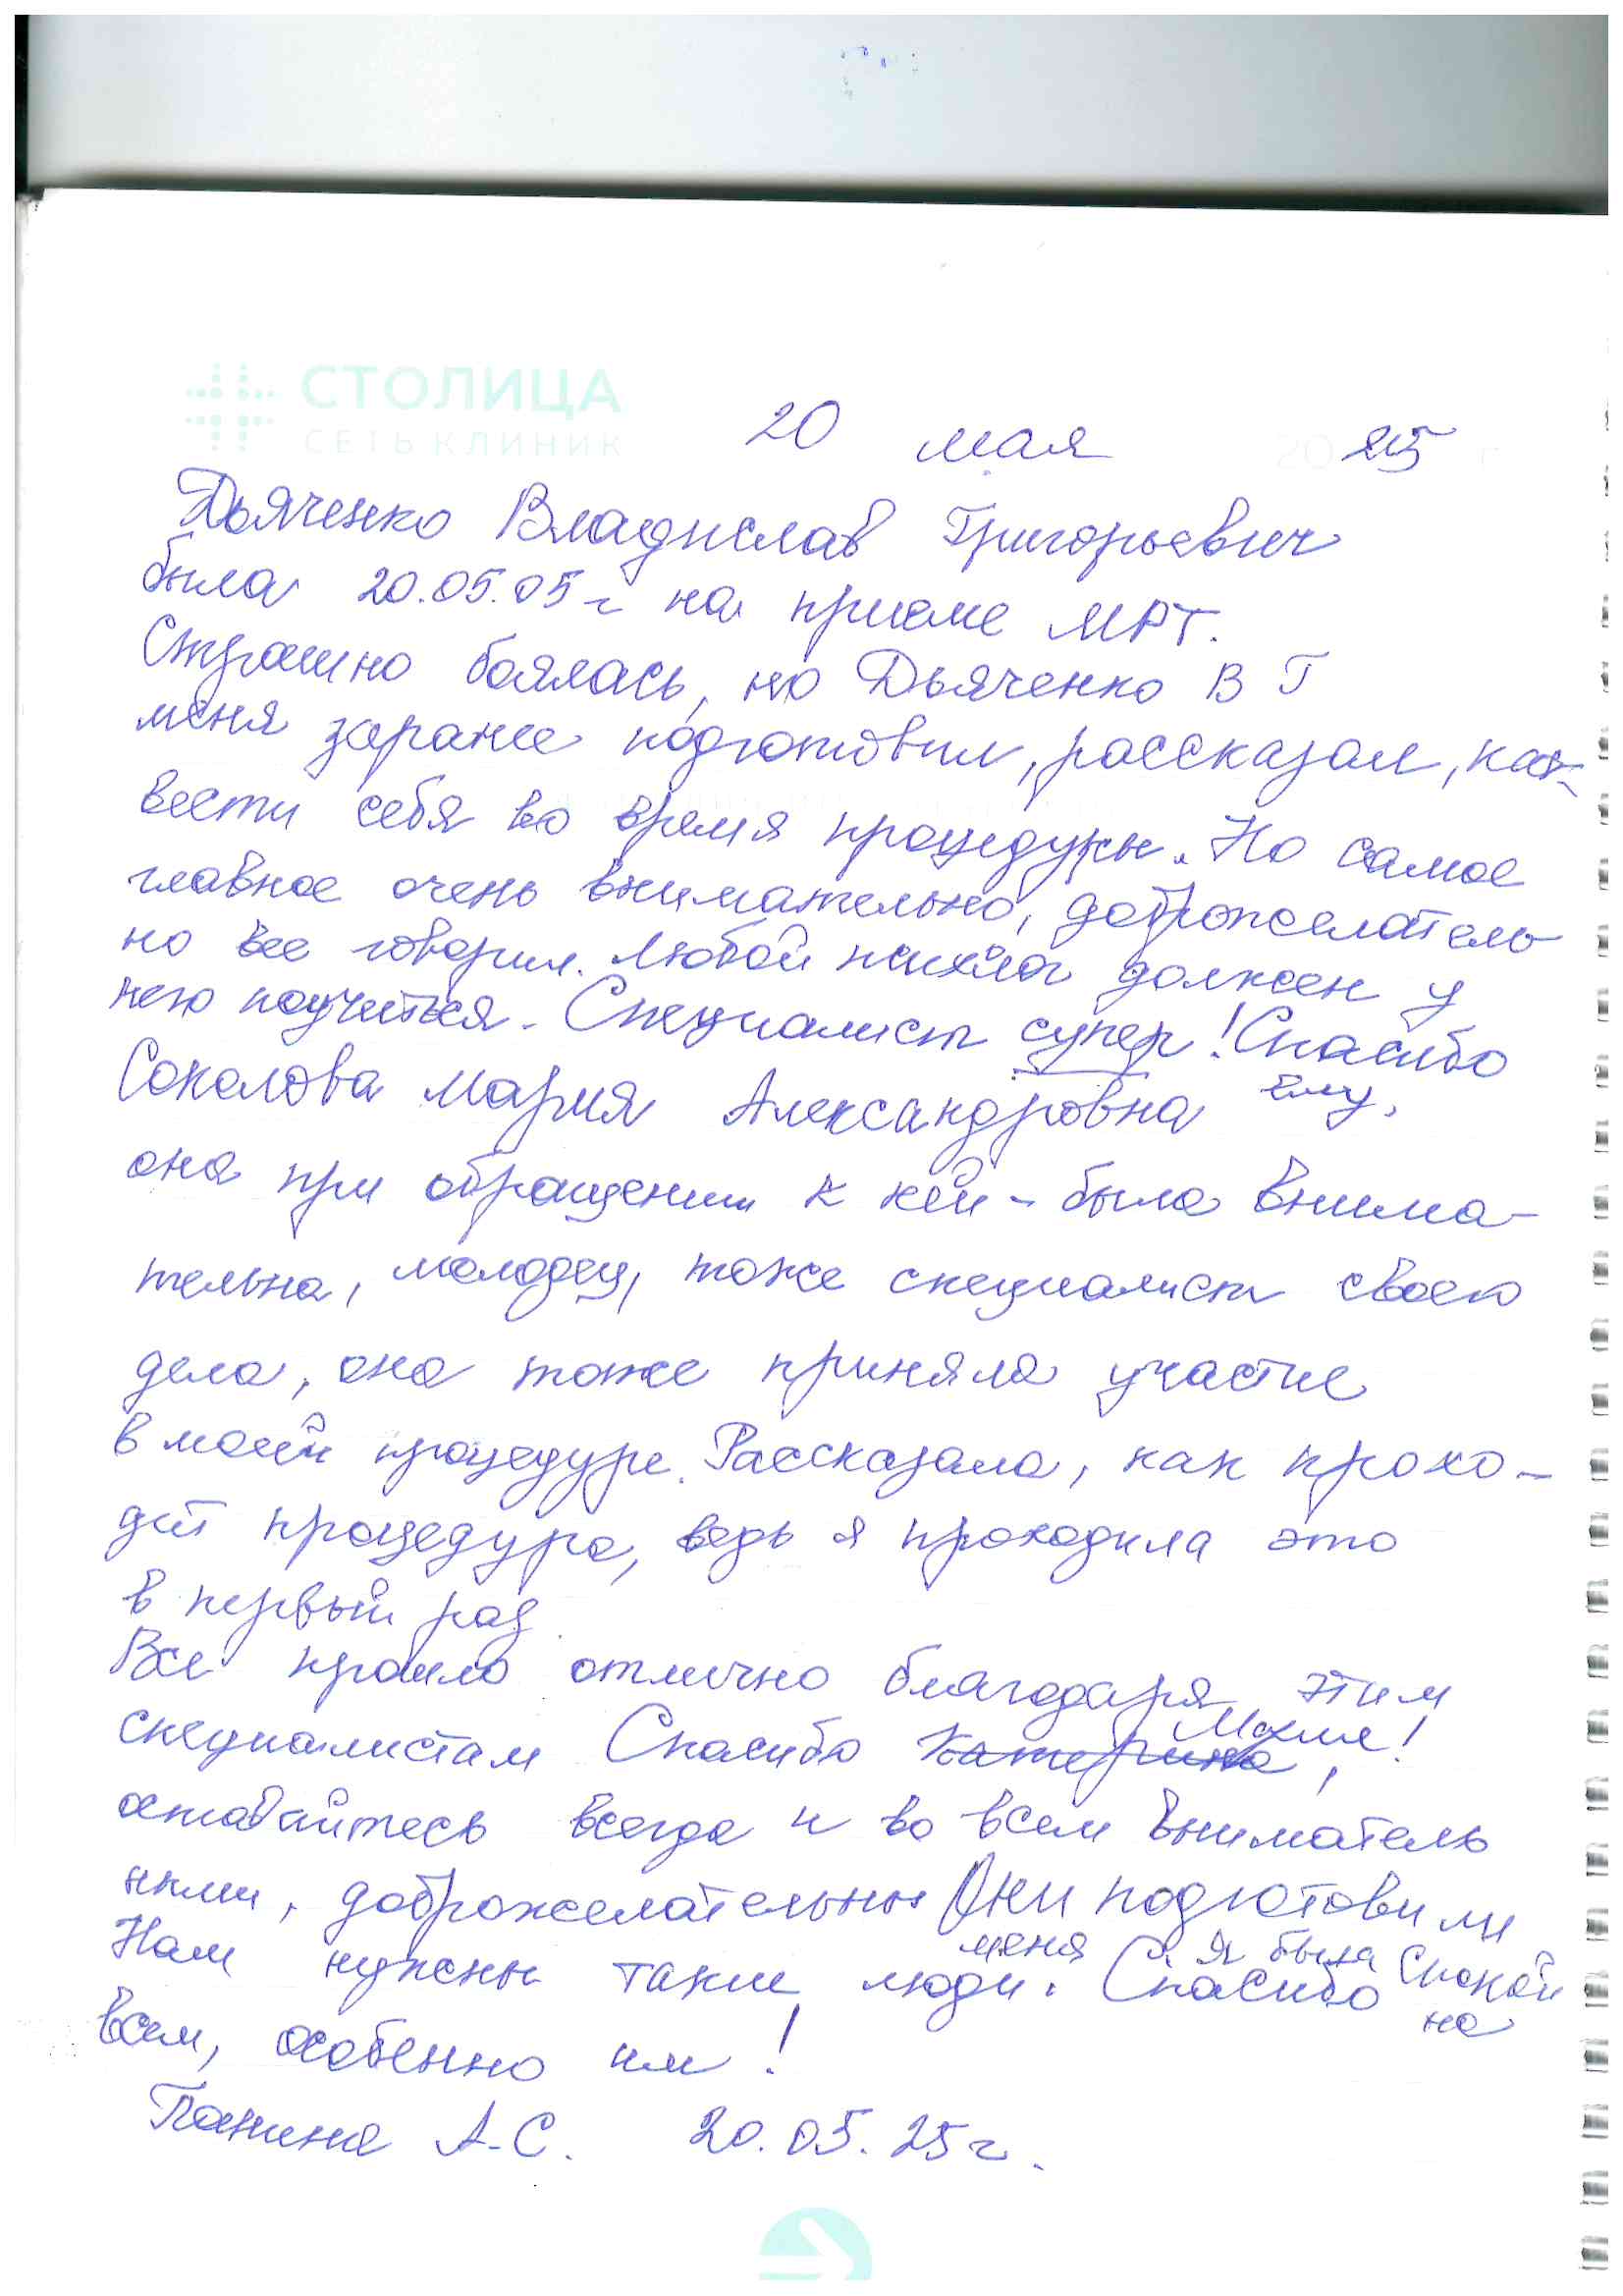 СТОЛИЦА
СЕТЬ КЛИНИК
20 мая 2025
Дьяченко Владислав Григорьевич
была 20.05.05г на приеме МРТ.
Страшно боялась, но Дьяченко В Г
меня заранее подготовил, рассказал, как
вести себя во время процедуры. Но самое
главное очень внимательно, доброжелатель
но все говорил. Любой психолог должен у
него поучиться. Специалист супер! Спасибо
ему.
Соколова Мария Александровна
она при обращении к ней - была внима-
тельна, молодец, тоже специалист своего
дела, она тоже приняла участие
в моей процедуре. Рассказала, как прохо-
дит процедура, ведь я проходила это
в первый раз
Все прошло отлично благодаря этим
специалистам Спасибо Катерина, Марие!
оставайтесь всегда и во всем вниматель
ными, доброжелательны Они подготовили
меня я была спокой
на
Нам нужны такие люди. Спасибо
всем, особенно им!
Панина А.С. 20.05.25г.